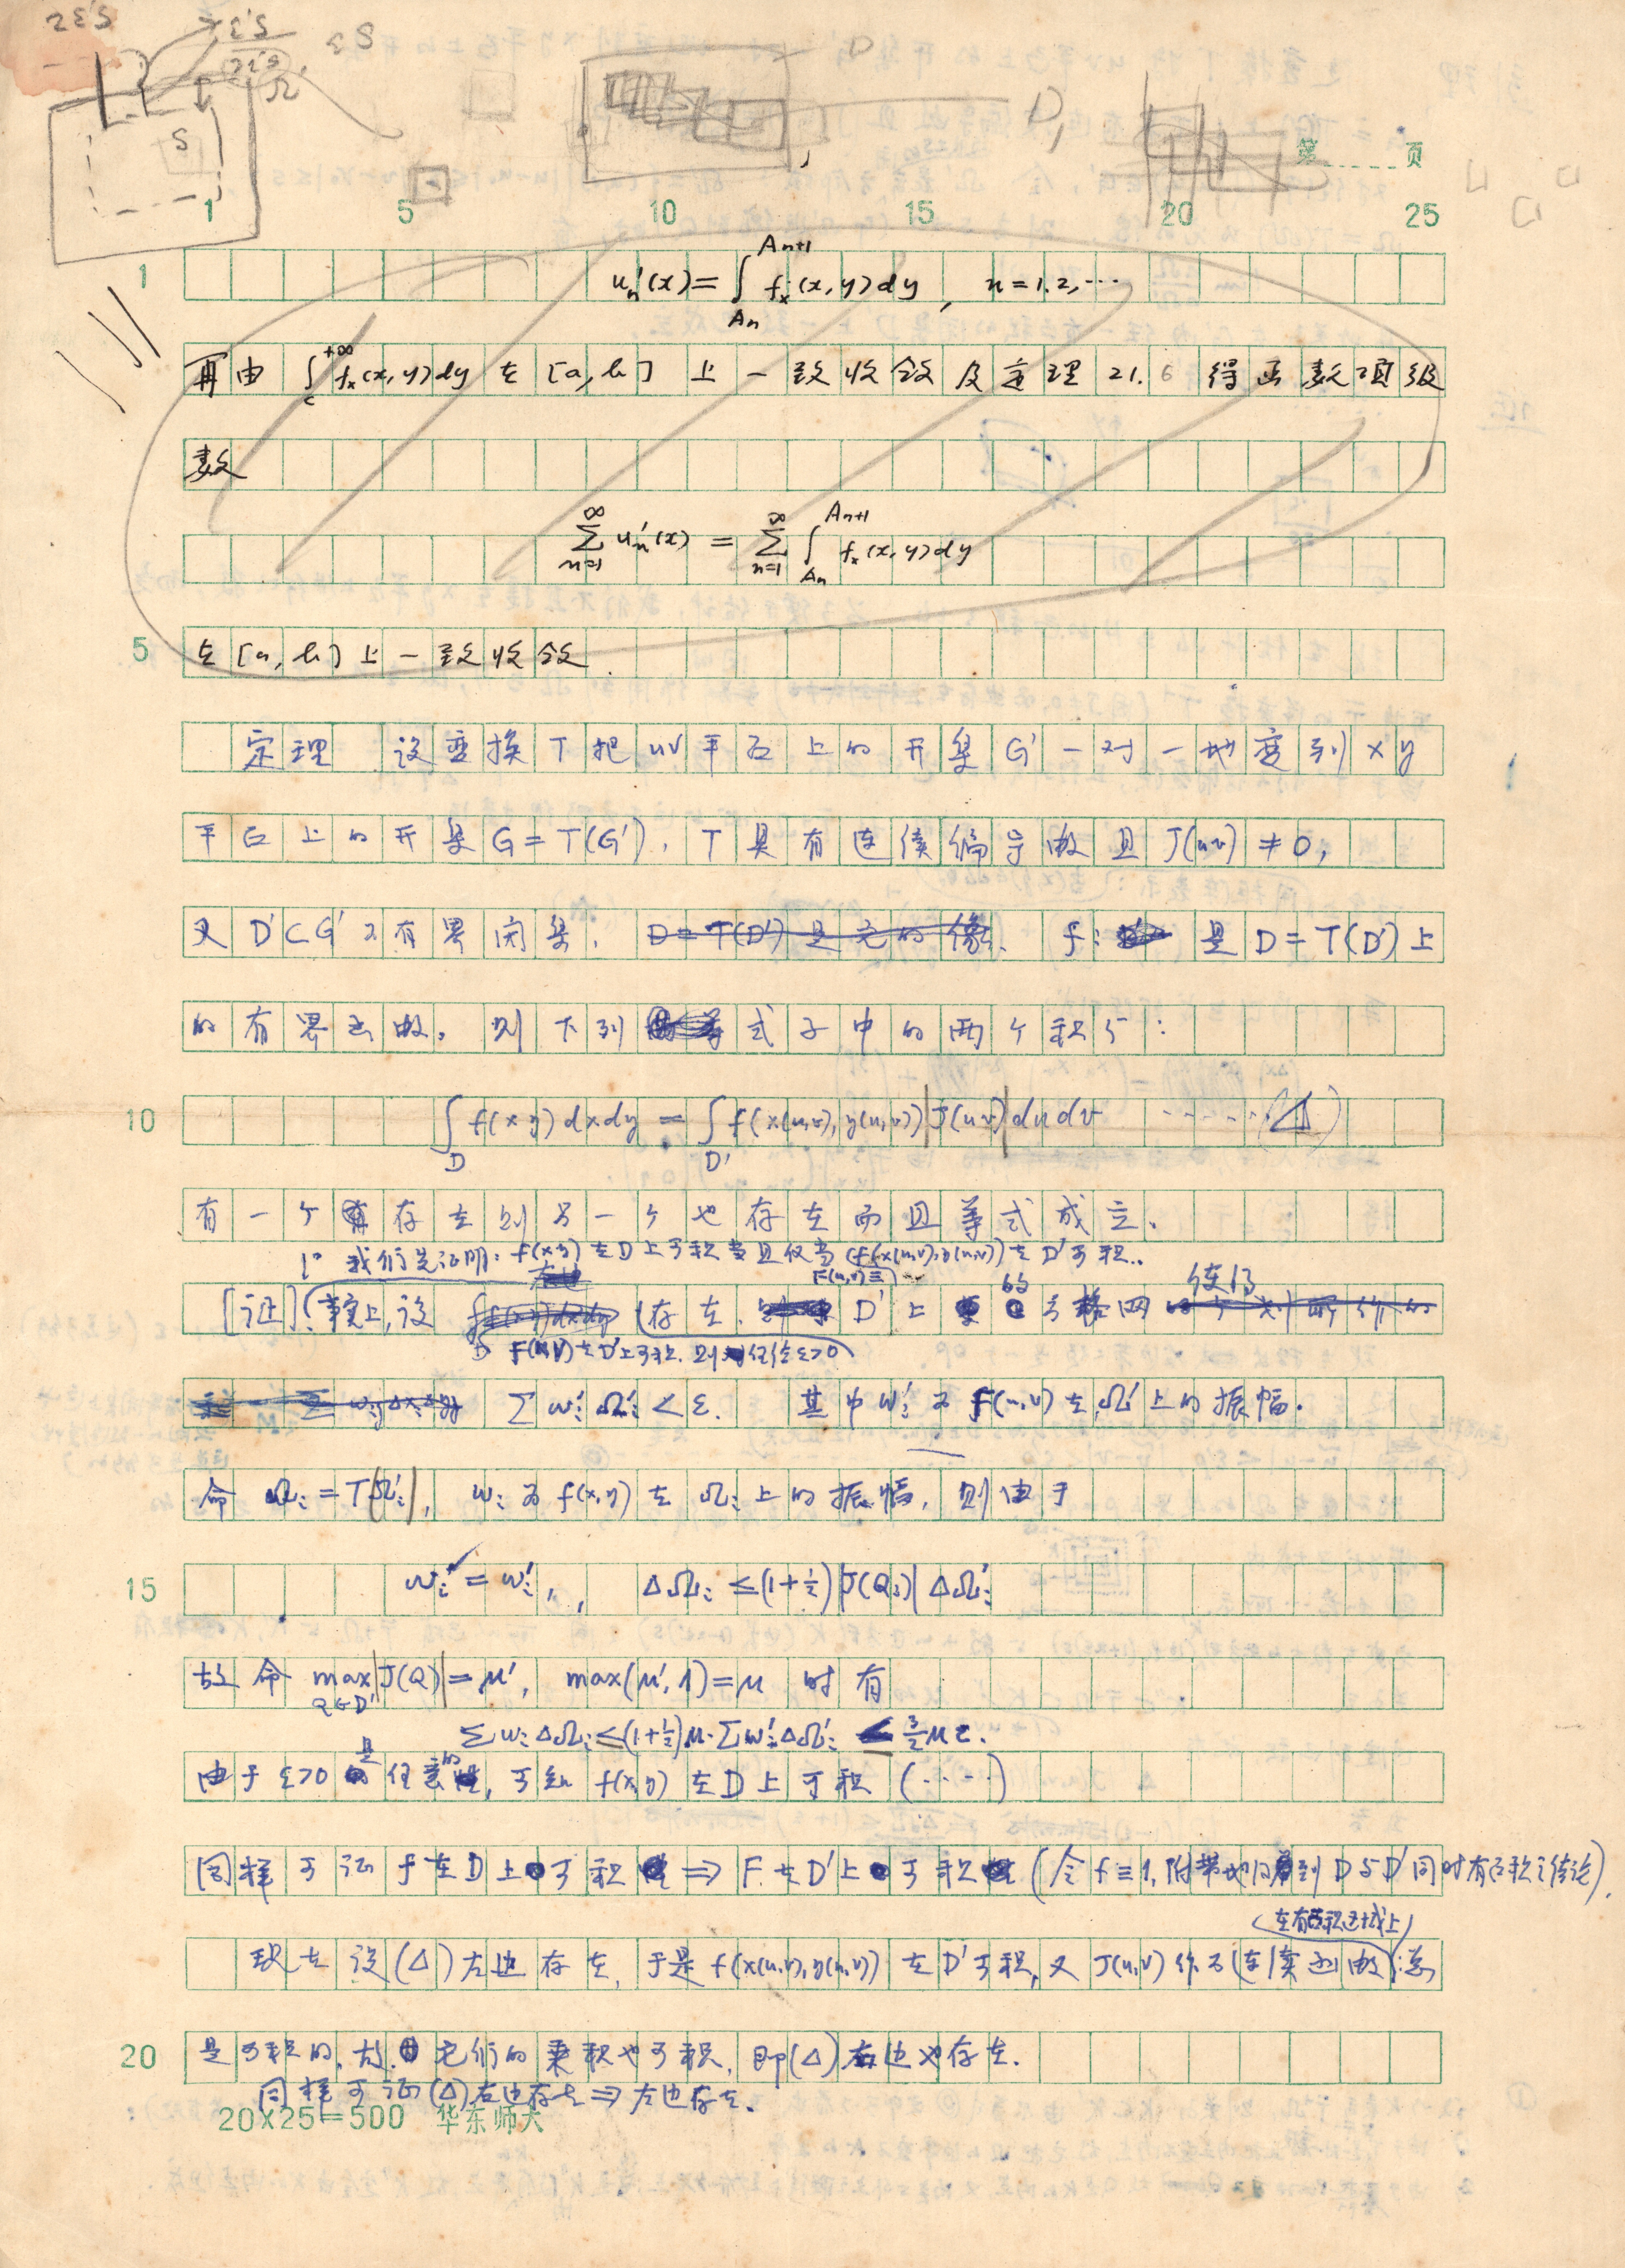 2ε'S
ε'S
2ε'S
εS
Ω
S
D
D,
第 页
1 5 10 15 20 25
1
uₙ'(x) = ∫_{Aₙ}^{Aₙ₊₁} fₓ(x,y)dy, n=1.2,…
再由 ∫_c^{+∞} fₓ(x,y)dy 在 [a,b] 上一致收敛及定理 21.6 得函数项级
数
∑_{n=1}^{∞} uₙ'(x) = ∑_{n=1}^{∞} ∫_{Aₙ}^{Aₙ₊₁} fₓ(x,y)dy
5 在 [a,b] 上一致收敛.
定理 设变换 T 把 uv 平面上的开集 G' 一对一地变到 xy
平面上的开集 G=T(G'), T 具有连续偏导数且 J(uv)≠0,
又 D'⊂G' 为有界闭集. D=T(D') 是它的像. f 是 D=T(D') 上
的有界函数. 则下列 式子中的两个积分:
10 ∫_D f(x y)dxdy = ∫_{D'} f(x(u,v), y(u,v))|J(uv)|dudv ……(Δ)
有一个存在则另一个也存在而且等式成立.
1° 我们先证明: f(x y) 在 D 上可积当且仅当 (f(x(u,v),y(u,v)) 在 D' 可积..
F(u,v)≡
[证] 事实上, 设 存在. D' 上的 网 使得
F(u,v) 在 D' 上可积. 则对任给 ε>0
∑ wᵢ' Ωᵢ' < ε. 其中 wᵢ' 为 F(u,v) 在 Ωᵢ' 上的振幅.
命 Ωᵢ = T(Ωᵢ'), wᵢ 为 f(x,y) 在 Ωᵢ 上的振幅, 则由于
15 wᵢ = wᵢ', ΔΩᵢ ≤ (1+½)|J(Qᵢ)|ΔΩᵢ'
故命 max_{Q∈D'}|J(Q)| = μ', max(μ',1)=μ 时有
∑ wᵢ ΔΩᵢ ≤ (1+½)μ·∑ wᵢ' ΔΩᵢ' ≤ 3/2 με.
由于 ε>0 是任意的, 可知 f(x,y) 在 D 上可积 (….)
同样可证 f 在 D 上可积 ⇒ F 在 D' 上可积 (令 f≡1, 附带地得到 D 与 D' 同时有面积之结论).
(在有面积区域上)
现在设 (Δ) 左边存在, 于是 f(x(u,v),y(u,v)) 在 D' 可积, 又 J(u,v) 作为连续函数 总
20 是可积的, 故 它们的乘积也可积, 即 (Δ) 右边也存在.
同样可证 (Δ) 右边存在 ⇒ 左边存在.
20×25=500 华东师大